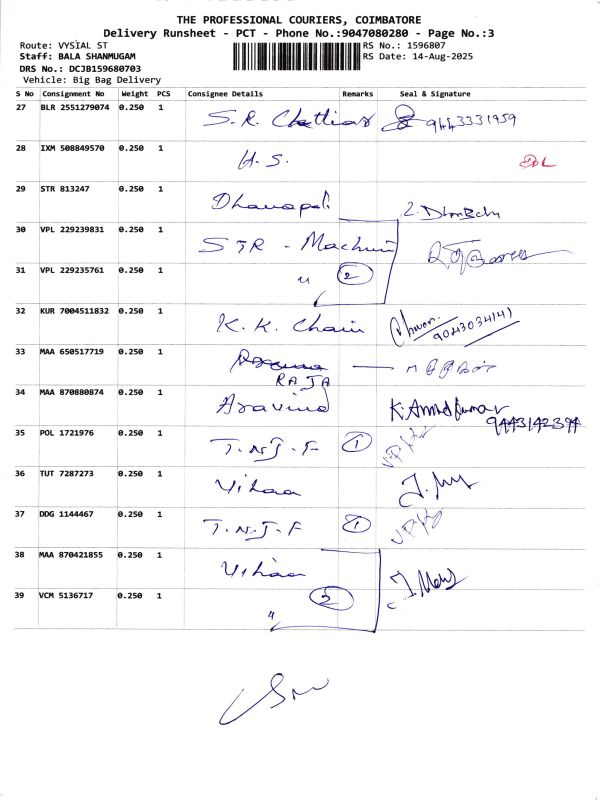 THE PROFESSIONAL COURIERS, COIMBATORE
Delivery Runsheet - PCT - Phone No.:9047080280 - Page No.:3
Route: VYSIAL ST
RS No.: 1596807
Staff: BALA SHANMUGAM
RS Date: 14-Aug-2025
DRS No.: DCJB159680703
Vehicle: Big Bag Delivery
S No Consignment No Weight PCS Consignee Details Remarks Seal & Signature
27 BLR 2551279074 0.250 1 S.R. Chettiar 9443331959
28 IXM 508849570 0.250 1 H.S. DL
29 STR 813247 0.250 1 Dhanapal
30 VPL 229239831 0.250 1 STR - Machine
31 VPL 229235761 0.250 1 " 2
32 KUR 7004511832 0.250 1 K.K. Chain 9043034141
33 MAA 650517719 0.250 1
RAJA
34 MAA 870880874 0.250 1 Aravind K. 9443142394
35 POL 1721976 0.250 1 T.N.J.F 1
36 TUT 7287273 0.250 1 Vihaa
37 DDG 1144467 0.250 1 T.N.J.F 1
38 MAA 870421855 0.250 1 Vihaa
39 VCM 5136717 0.250 1 "